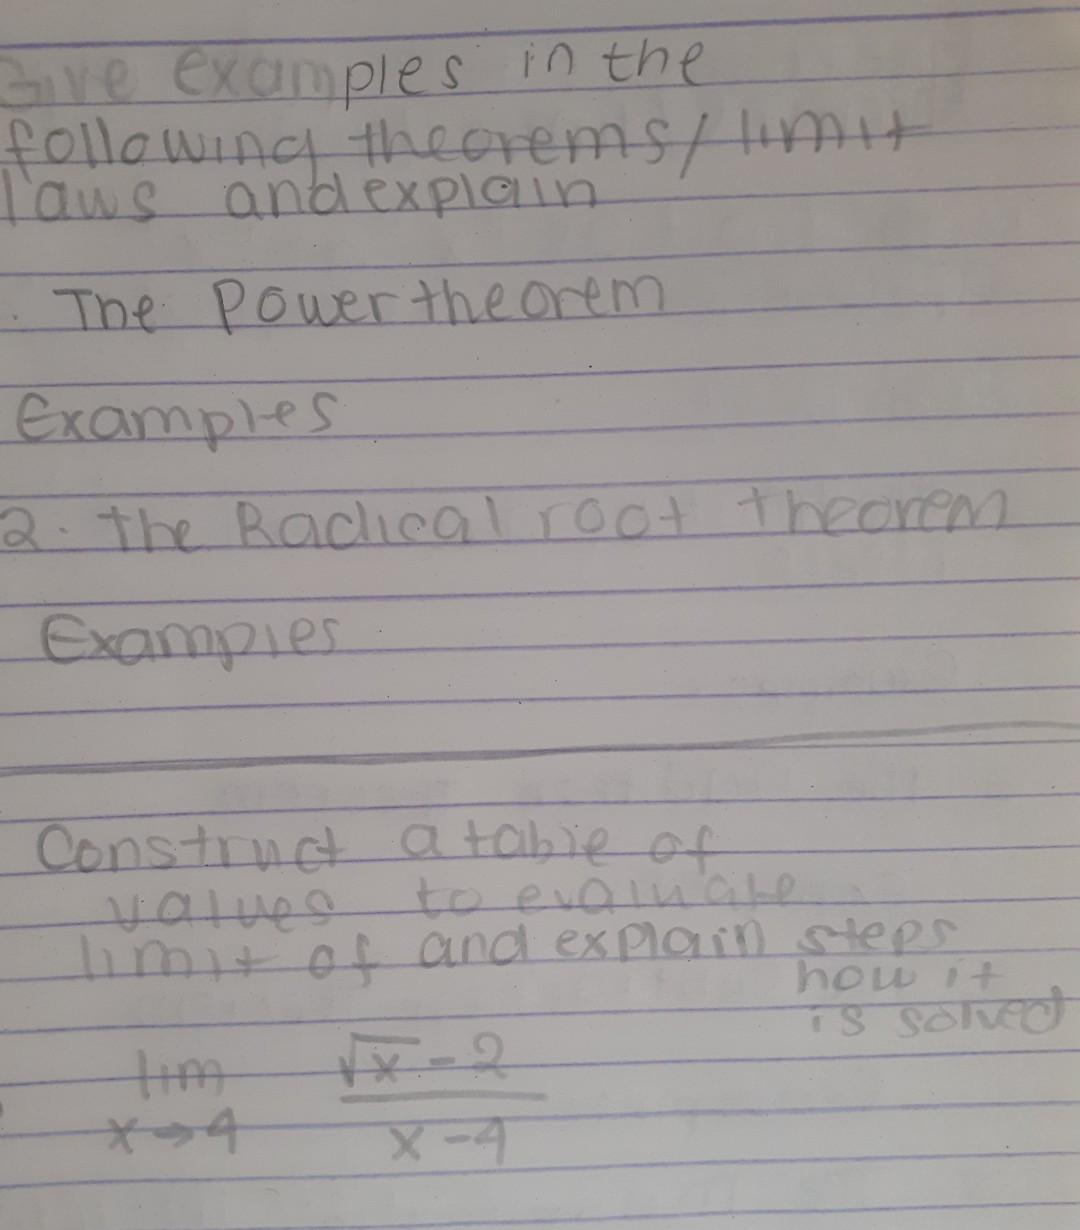 Give examples in the
following theorems/limit
laws and explain
. The Power theorem
Examples
2. The Radical root theorem
Examples
Construct a table of
values to evaluate
limit of and explain steps
how it
is solved
lim √x - 2
x→4 x - 4